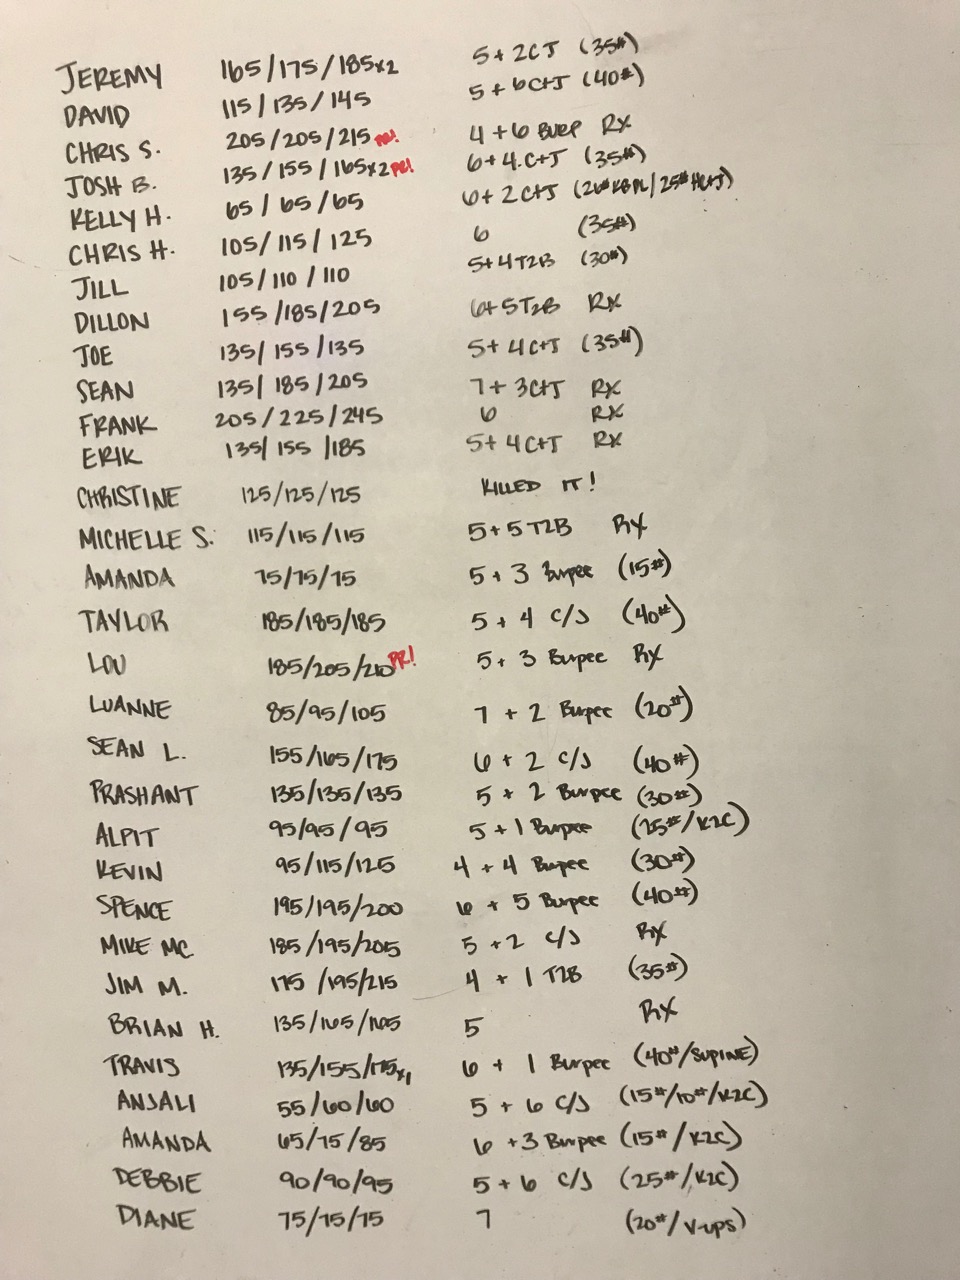 JEREMY 165/175/185x2 5+2CJ (35#)
DAVID 115/135/145 5+6C+J (40#)
CHRIS S. 205/205/215 PR! 4+6 BURP RX
JOSH B. 135/155/165x2 PR! 6+4 C+J (35#)
KELLY H. 65/65/65 6+2 C+J (26#KBPL/25#HC+J)
CHRIS H. 105/115/125 6 (35#)
JILL 105/110/110 5+4T2B (30#)
DILLON 155/185/205 6+5T2B RX
JOE 135/155/135 5+4C+J (35#)
SEAN 135/185/205 7+3C+J RX
FRANK 205/225/245 6 RX
ERIK 135/155/185 5+4C+J RX
CHRISTINE 125/125/125 KILLED IT!
MICHELLE S. 115/115/115 5+5T2B RX
AMANDA 75/75/75 5+3 Burpee (15#)
TAYLOR 185/185/185 5+4 C/J (40#)
LOU 185/205/210 PR! 5+3 Burpee RX
LUANNE 85/95/105 7+2 Burpee (20#)
SEAN L. 155/165/175 6+2 C/J (40#)
PRASHANT 135/135/135 5+2 Burpee (30#)
ALPIT 95/95/95 5+1 Burpee (25#/K2C)
KEVIN 95/115/125 4+4 Burpee (30#)
SPENCE 195/195/200 6+5 Burpee (40#)
MIKE MC 185/195/205 5+2 C/J RX
JIM M. 175/195/215 4+1 T2B (35#)
BRIAN H. 135/165/165 5 RX
TRAVIS 135/155/175x1 6+1 Burpee (40#/SUPINE)
ANJALI 55/60/60 5+6 C/J (15#/10#/K2C)
AMANDA 65/75/85 6+3 Burpee (15#/K2C)
DEBBIE 90/90/95 5+6 C/J (25#/K2C)
DIANE 75/75/75 7 (20#/V-UPS)